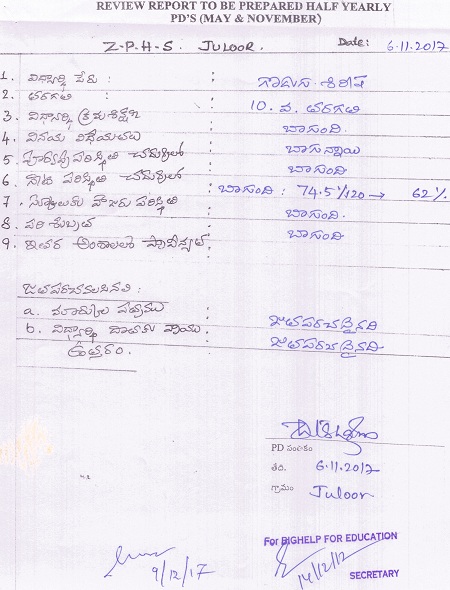 REVIEW REPORT TO BE PREPARED HALF YEARLY
PD'S (MAY & NOVEMBER)
Z-P-H-S. JULOOR. Date: 6-11-2017
1. విద్యార్థి పేరు : : గాదుగ శిరీష
2. తరగతి : : 10. వ. తరగతి
3. విద్యార్థి క్రమశిక్షణ : బాగుంది.
4. వినయ విధేయతలు : బాగున్నాయి
5. పూర్వపు పరిస్థితి చదువులో : బాగుంది
6. నేటి పరిస్థితి చదువులో : బాగుంది : 74.5/120 → 62%
7. స్కూలుకు హాజరు పరిస్థితి : బాగుంది.
8. పరిశుభ్రత : బాగుంది
9. ఇతర అంశాలలో
జతపరచవలసినవి :
a. మార్కుల పట్టిక : జతపరచనైనది
b. విద్యార్థి దాతకు వ్రాయు : జతపరచనైనది.
ఉత్తరం.
PD సంతకం
తేది. 6-11-2017
గ్రామం Juloor
For BIGHELP FOR EDUCATION
9/12/17
14/12/12
SECRETARY